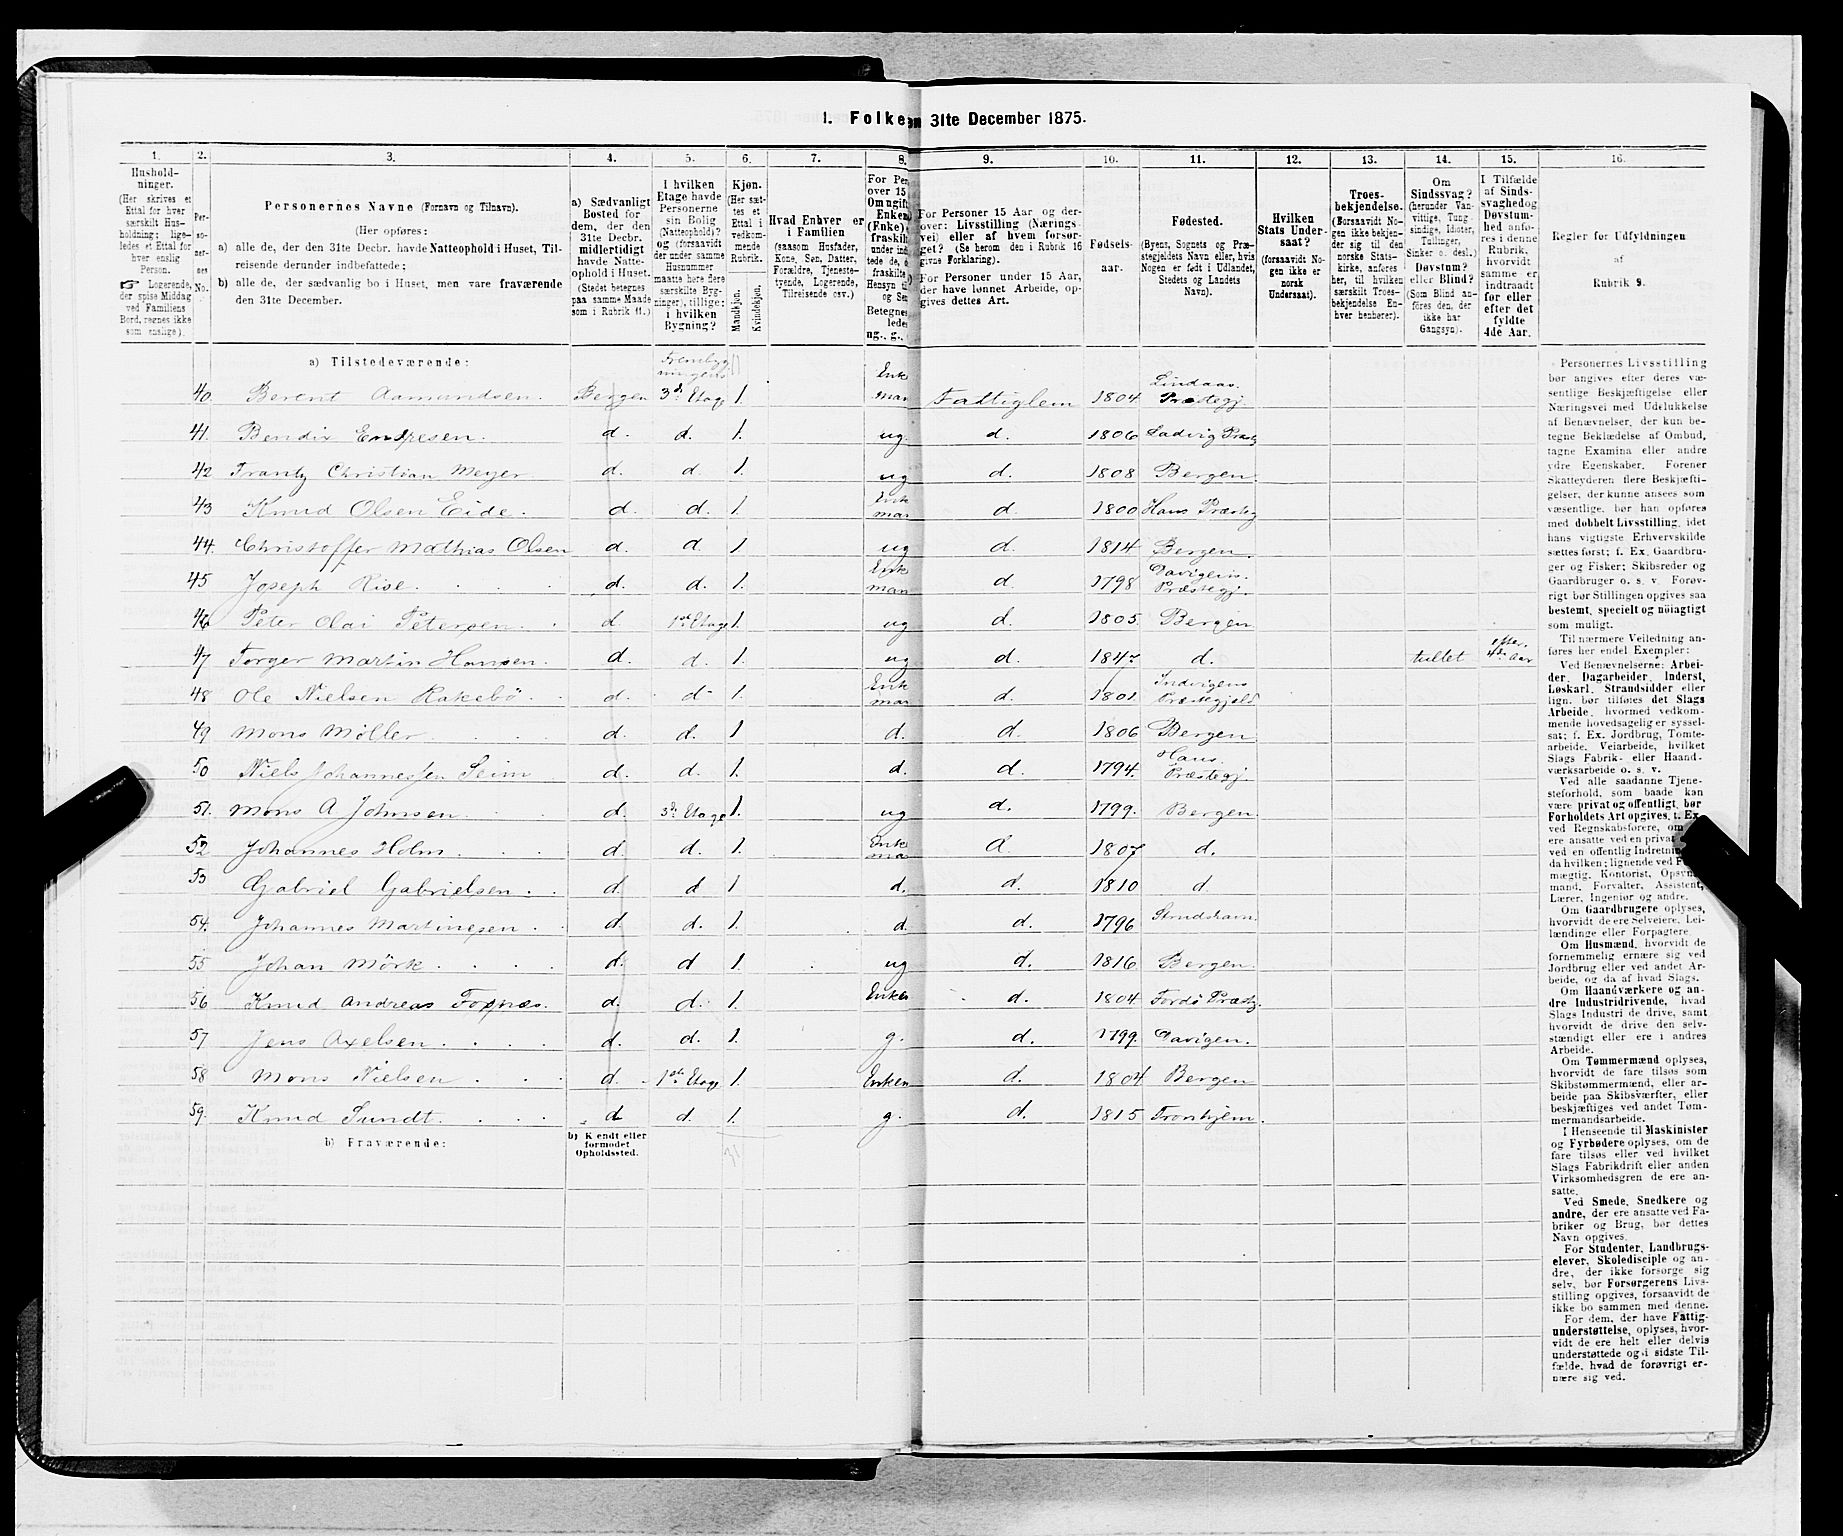 1. Folke
en 31te December 1875.
1.
2.
3.
4.
5.
6.
7.
8.
9.
10.
11.
12.
13.
14.
15.
16.
Hushold-
ninger.
(Her skrives et
Ettal for hver
særskilt Hus-
holdning; lige-
ledes et Ettal for
hver enslig
Person.
☞ Logerende,
der spise Middag
ved Familiens
Bord, regnes ikke
som enslige).
Per-
so-
ner-
nes
No.
Personernes Navne (Fornavn og Tilnavn).
(Her opføres:
a) alle de, der den 31te Decbr. havde Natteophold i Huset, Til-
reisende derunder indbefattede;
b) alle de, der sædvanlig bo i Huset, men vare fraværende
den 31te December.
a) Sædvanligt
Bosted for
dem, der den
31te Decbr.
midlertidigt
havde Natte-
ophold i Huset.
(Stedet betegnes
paa samme Maade
som i Rubrik 11.)
I hvilken
Etage havde
Personerne
sin Bolig
(Natteophold)?
og (forsaavidt
der under samme
Husnummer
maatte høre flere
særskilte Byg-
ninger), tillige:
i hvilken
Bygning?
Kjøn.
(Her sæt-
tes et
Ettal i
vedkom-
mende
Rubrik.
Mandkjøn.
Kvindekjøn.
Hvad Enhver er
i Familien
(saasom Husfader,
Kone, Søn, Datter,
Forældre, Tjeneste-
tyende, Logerende,
Tilreisende osv.)
For Per
over 15
Om ugift
Enkem
(Enke)
fraskilt
under ind
tede de, d
fraskilte
Hensyn ti
og Se
Betegnes
ledes
ug., g.,
For Personer 15 Aar og der-
over: Livsstilling (Nærings-
vei) eller af hvem forsør-
get? (Se herom den i Rubrik 16
givne Forklaring).
For Personer under 15 Aar,
der have lønnet Arbeide, op-
gives dettes Art.
Fødsels-
aar.
Fødested.
(Byens, Sognets og Præ-
stegjeldets Navn eller, hvis
Nogen er født i Udlandet,
Stedets og Landets
Navn).
Hvilken
Stats Under-
saat?
(forsaavidt No-
gen ikke er
norsk
Undersaat).
Troes-
bekjendelse.
(Forsaavidt No-
gen ikke bekjen-
der sig til den
norske Stats-
kirke, anføres
her, til hvilken
særskilt Troes-
bekjendelse En-
hver henhører).
Om
Sindssvag?
(herunder Van-
vittige, Tung-
sindige, Idioter,
Tullinger,
Sinker o. desl.)
Døvstum?
eller Blind?
(Som Blind an-
føres den, der
ikke har
Gangsyn).
I Tilfælde
af Sinds-
svaghed og
Døvstum-
hed anfø-
res i denne
Rubrik,
hvorvidt
samme er
indtraadt
før eller
efter det
fyldte
4de Aar.
Regler for Udfyldningen
af
Rubrik 9.
a) Tilstedeværende:
40. Berent Aamundsen. Bergen 3d. Etage 1. Enk man Fattiglem 1804. Lindaas. Præstegj.
41. Bendix Endresen. d. d. 1. ug. d. 1806 Ladvig Præstg
42 Frantz Christian Meyer d. d. 1. ug d. 1808 Bergen.
43 Knud Olsen Eide. d. d. 1. Enk man d. 1800 Haus Præsteg
44. Christoffer Mathias Olsen d. d. 1. ug d. 1814 Bergen.
45 Joseph Rise. d. d. 1. Enk man d. 1798 Davigens. Præstegj.
46 Peter Olai Petersen d. 1ste Etage 1. ug d. 1805. Bergen
47 Torger Martin Hansen. d. d. 1. ug d. 1847 d. tullet efter. 4de Aar
48 Ole Nielsen Rakebö. d. d. 1. Enk man d. 1801. Indvigens Præstegjeld
49 Mons Møller d. d. 1 d. d. 1806 Bergen
50 Niels Johannessen Seim d. d. 1. d. d. 1794. Haus. Præstegj.
51. Mons A Johnsen d. 3d. Etage 1. ug d. 1799. Bergen.
52 Johannes Holm. d. d. 1. Enk ma d. 1807 d.
53 Gabriel Gabrielsen. d. d 1 d. d. 1810 d.
54. Johannes Martinesen d. d. 1. d. d. 1796 Strudshavn.
55 Johan Mörk. d. d 1. ug d. 1816 Bergen.
56 Knud Andreas d. d. 1. Enken d. 1804. Fordö Præstg.
57 Jens Axelsen. d. d. 1. g. d. 1799. Davigen.
58 Mons Nielsen d. 1ste Etage 1. Enken d. 1804 Bergen
59. Knud Sundt. d d. 1. g. d. 1815 Tronhjem.
b) Fraværende:
b) K endt eller
formodet
Opholdssted.
Personernes Livsstilling
bør angives efter deres væ-
sentlige Beskjæftigelse eller
Næringsvei med Udelukkelse
af Benævnelser, der kun be-
tegne Beklædelse af Ombud,
tagne Examina eller andre
ydre Egenskaber. Forener
Skatteyderen flere Beskjæfti-
gelser, der kunne ansees som
væsentlige, bør han opføres
med dobbelt Livsstilling, idet
hans vigtigste Erhvervskilde
sættes først; f. Ex. Gaardbru-
ger og Fisker; Skibsreder og
Gaardbruger o. s. v. Forøv-
rigt bør Stillingen opgives saa
bestemt, specielt og nöiagtigt
som muligt.
Til nærmere Veiledning an-
føres her endel Exempler:
Ved Benævnelserne: Arbei-
der, Dagarbeider, Inderst,
Løskarl, Strandsidder eller
lign. bør tilføies det Slags
Arbeide, hvormed vedkom-
mende hovedsagelig er syssel-
sat; f. Ex. Jordbrug, Tomte-
arbeide. Veiarbeide, hvilket
Slags Fabrik- eller Haand-
værksarbeide o. s. v.
Ved alle saadanne Tjene-
steforhold, som baade kan
være privat og offentligt, bør
Forholdets Art opgives, t. Ex.
ved Regnskabsførere, om
ere ansatte ved en privat
ved en offentlig Indretnin
da hvilken; lignende ved F
mægtig, Kontorist, Opsyn
mand, Forvalter, Assistent,
Lærer, Ingeniør og andre.
Om Gaardbrugere oplyses,
hvorvidt de ere Selveiere, Lei-
lændinge eller Forpagtere.
Om Husmænd, hvorvidt de
fornemmelig ernære sig ved
Jordbrug eller ved andet Ar-
beide, og da af hvad Slags.
Om Haandværkere og an-
dre Industridrivende, hvad
Slags Industri de drive, samt
hvorvidt de drive den selv-
stændigt eller ere i andres
Arbeide.
Om Tømmermænd oplyses,
hvorvidt de fare tilsøs som
Skibstømmermænd, eller ar-
beide paa Skibsværfter, eller
beskjæftiges ved andet Tøm-
mermandsarbeide.
I Henseende til Maskinister
og Fyrbødere oplyses, om de
fare tilsøs eller ved hvilket
Slags Fabrikdrift eller anden
Virksomhedsgren de ere an-
satte.
Ved Smede, Snedkere og
andre, der ere ansatte ved Fa-
briker og Brug, bør dettes
Navn opgives.
For Studenter, Landbrugs-
elever, Skoledisciple og an-
dre, der ikke forsørge sig
selv, bør Forsørgerens Livs-
stilling opgives, forsaavidt de
ikke bo sammen med denne.
For dem, der have Fattig-
understøttelse, oplyses, hvor-
vidt de ere helt eller delvis
understøttede og i sidste Til-
fælde, hvad de forøvrigt er-
nære sig ved.